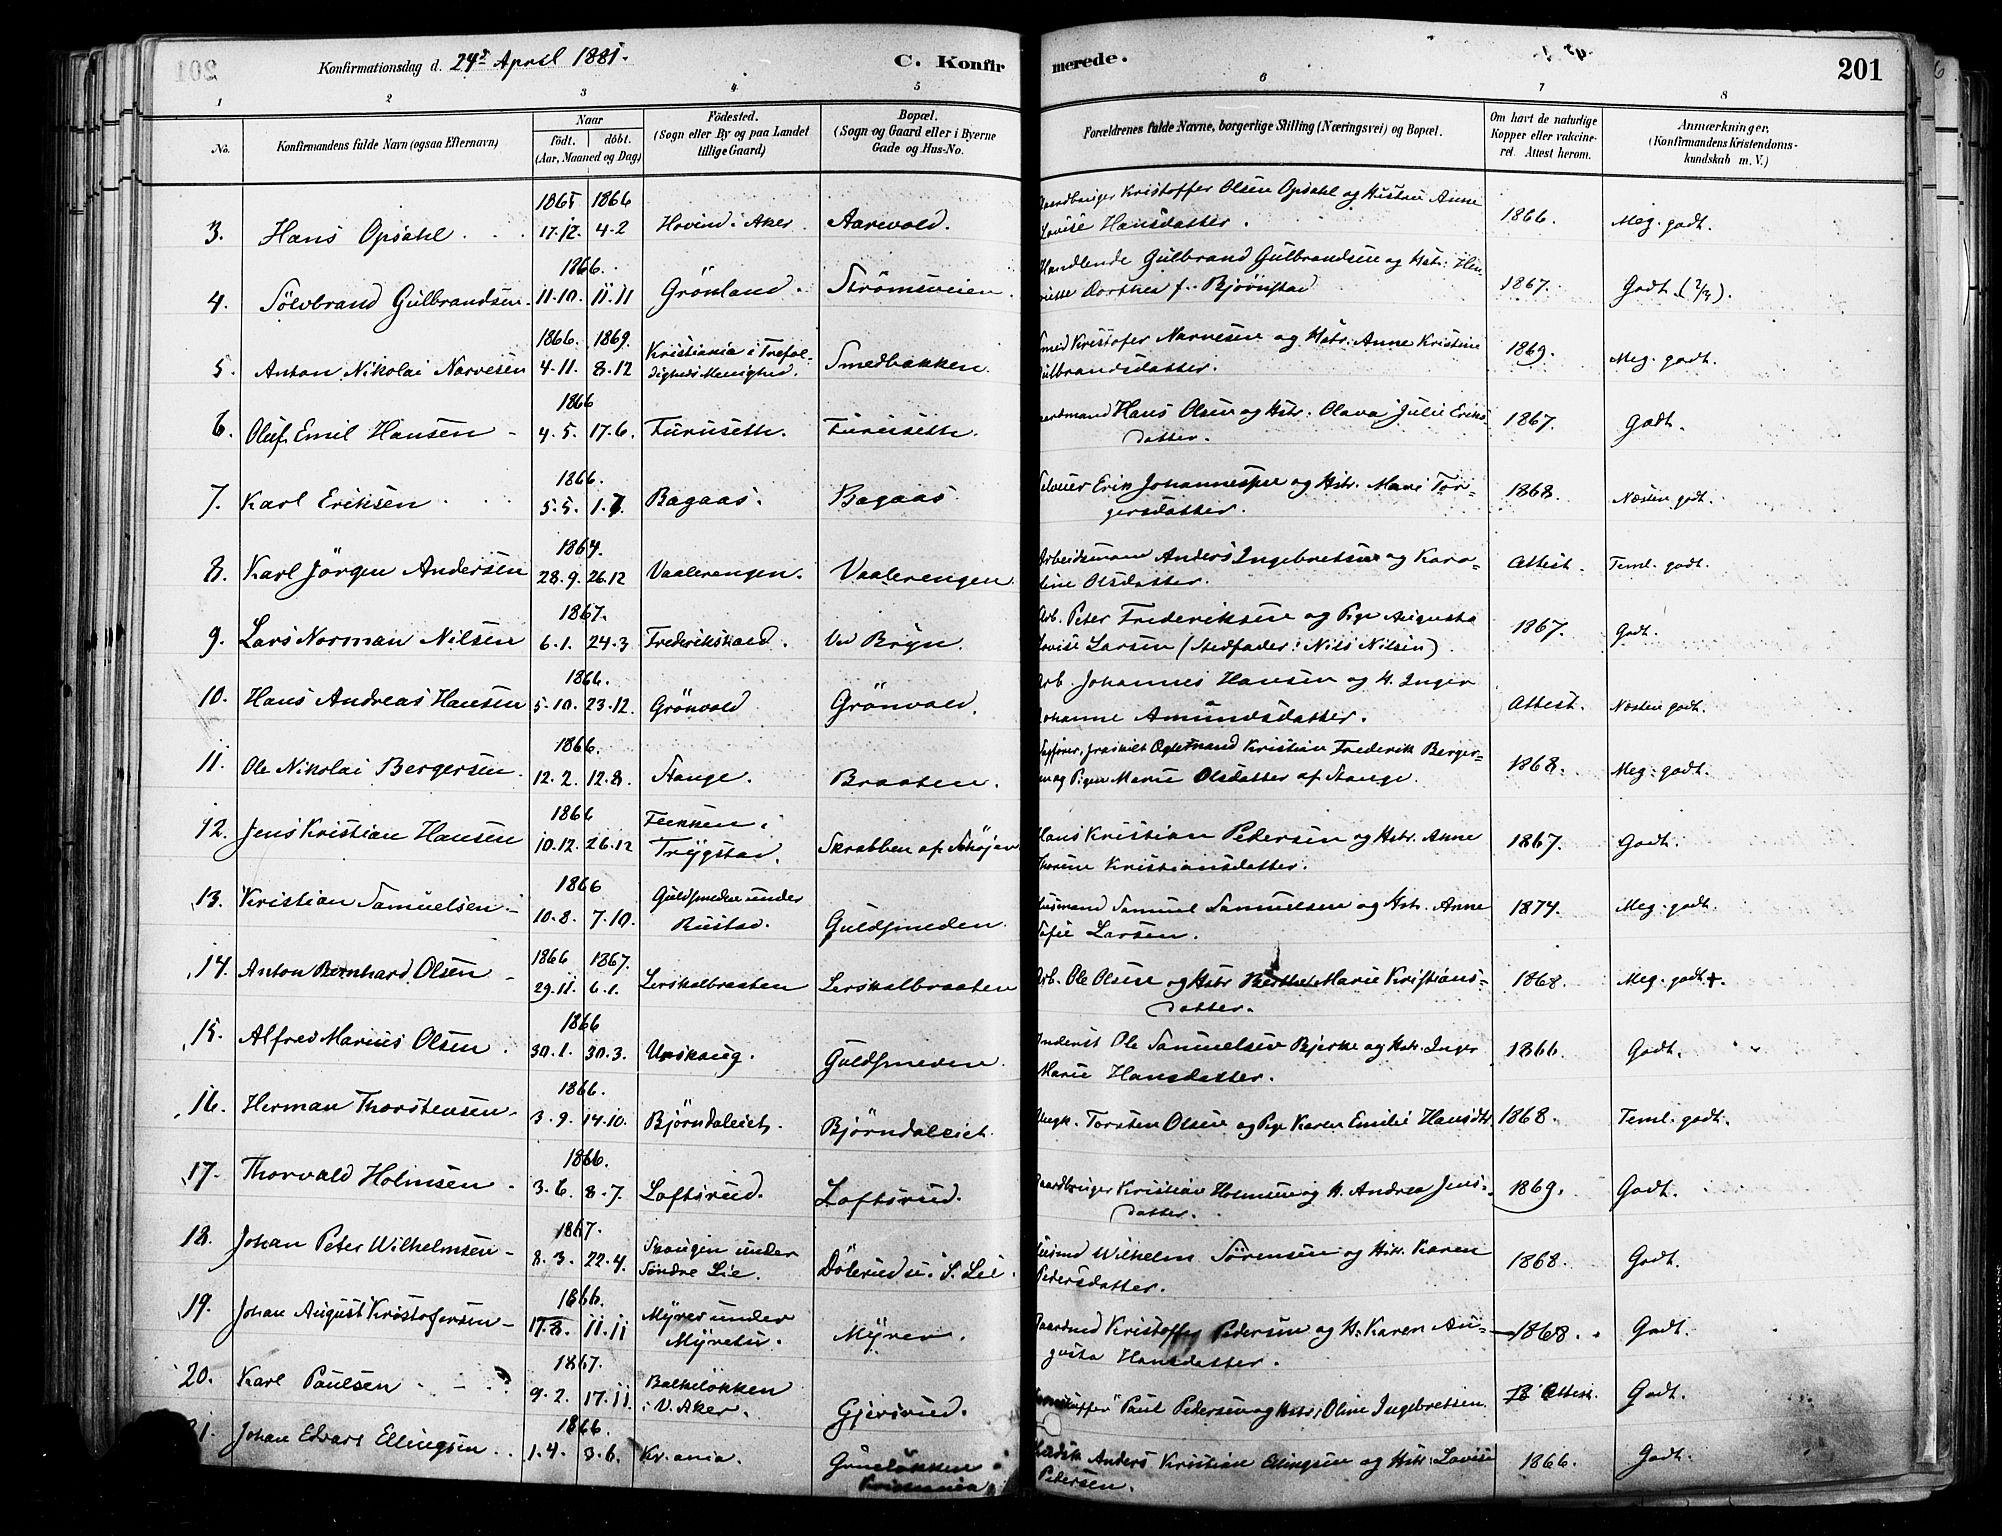 Konfirmationsdag d. 24de April 1881.
C. Konfirmerede.
201
1 2 3 4 5 6 7 8
No.
Konfirmandens fulde Navn (ogsaa Efternavn)
Naar
født. døbt.
(Aar, Maaned og Dag)
Fødested.
(Sogn eller By og paa Landet
tillige Gaard)
Bopæl.
(Sogn og Gaard eller i Byerne
Gade og Hus-No.
Forældrenes fulde Navne, borgerlige Stilling (Næringsvei) og Bopæl.
Om havt de naturlige
Kopper eller vakcine-
ret. Attest herom.
Anmærkninger,
(Konfirmandens Kristendoms-
kundskab m. V.)
1865 1866
3. Hans Opsahl. 17.12. 4.2 Hovind i Aker. Aarvold. Gaardbruger Kristoffer Olsen Opsahl og Hustru Anne
Lovise Hansdatter. 1866. Meg. godt.
1866.
4. Sölvbrand Gulbrandsen. 11.10. 11.11 Grönland. Strömsveien. Handlende Gulbrand Gulbrandsen og Hstr. Hen
riette Dorthea f. Bjørnstad 1867. Godt. (2/3).
1866. 1869.
5. Anton Nikolai Narvesen 4.11. 8.12 Kristiania i Trefol-
digheds Menighed. Smedbakken. Smed Kristofer Narvesen og Hstr. Anne Kristine
Gulbrandsdatter. 1869. Meg. godt.
1866
6. Oluf Emil Hansen 4.5. 17.6. Furuseth. Furuseth. Hans Olsen og Hstr. Olava Julie Eriks
datter. 1867. Godt.
1866.
7. Karl Eriksen 5.5. 1.7. Bagaas. Bagaas. Erik Johannessen og Hstr. Mari Tor-
gersdatter. 1868. Næsten godt.
1864.
8. Karl Jörgen Andersen 28.9. 26.12 Vaalerengen. Vaalerengen. Arbeidsmann Anders Ingebretsen og Karo-
line Olsdatter. Attest. Teml. godt.
1867.
9. Lars Norman Nilsen 6.1. 24.3 Frederikshald. Ved Bryn. Arb. Peter Frederiksen og Pige Augusta
Lovise Larsen (Stedfader: Nils Nilsen). 1867. Godt.
1866.
10. Hans Andreas Hansen 5.10. 23.12. Grönvold Grönvold. Arb. Johannes Hansen og H. Inger
Johanne Amundsdatter. Attest. Næsten godt.
1866.
11. Ole Nikolai Bergersen. 12.2. 12.8. Stange. Braaten. Kristian Frederik Berger-
sen og Pigen Marie Olsdatter af Stange. 1868. Meg. godt.
1866
12. Jens Kristian Hansen 10.12. 26.12 i
Trygstad. Skrabben af Hans Kristian Pedersen og Hstr. Anne
Thorine Kristiansdatter. 1867. Godt.
1866
13. Kristian Samuelsen 10.8. 7.10. Guldsmeden under
Rustad. Guldsmeden. Husmand Samuel Samuelsen og Hstr. Anne
Sofie Larsen. 1874. Meg. godt.
1866 1867.
14. Anton Bernhard Olsen 29.11. 6.1. Lerskalbraaten Lerskalbraaten Arb. Ole Olsen og Hstr. Berthe Marie Kristians-
datter. 1868. Meg. godt+.
1866
15. Alfred Marius Olsen. 30.1. 30.3. Urskoug. Guldsmeden. Inderst Ole Samuelsen Bjerke og Hstr. Inger
Marie Hansdatter. 1866. Godt.
1866.
16. Herman Thorstensen. 3.9. 14.10. Björndaleiet. Björndaleiet. Ungk. Torsten Olsen og Pige Karen Emilie Hansdtr. 1868. Teml. godt.
1866.
17. Thorvald Holmsen. 3.6. 8.7. Loftsrud. Loftsrud. Gaardbruger Kristian Holmsen og H. Andrea Jens-
datter. 1869. Godt.
1867.
18. Johan Peter Wilhelmsen 8.3. 22.4. Skougen under
Søndre Lie. Dölerud u. S. Lie. Husmd Wilhelm Sörensen og Hstr. Karen
Pedersdatter. 1868. Godt.
1866.
19. Johan August Kristofersen 17.8. 11.11 Myrer under
Myrer. Gaardmd Kristoffer Pedersen og H. Karen Au-
gusta Hansdatter. 1868. Godt.
1867.
20. Karl Paulsen 9.2. 17.11. Balkeløkken
i V. Aker. Gjersrud. Paul Pedersen og Hstr. Oline Ingebretsen. Attest. Godt.
1866.
21. Johan Edvart Ellingsen 1.4. 3.6. Kr.ania. Grüneløkken
Kristiania Anders Kristian Ellingsen og Hstr. Lovise
Pedersen. 1866. Godt.